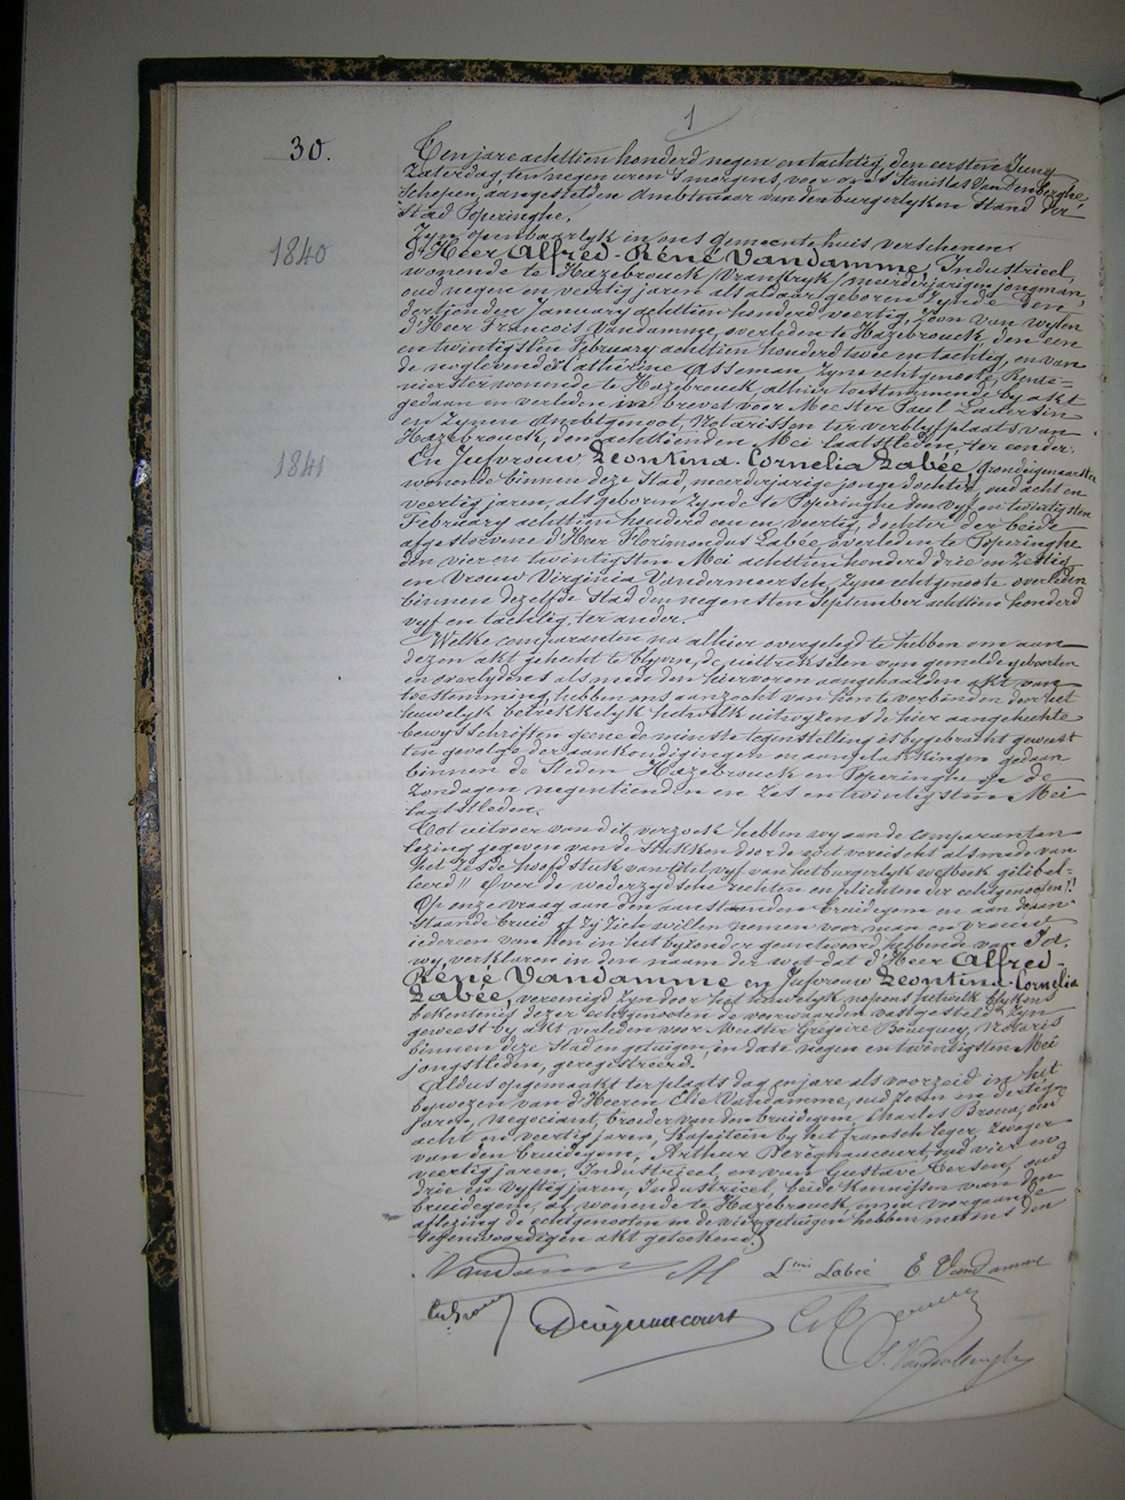 1
30.
Ten jare achttien honderd negen en tachtig, den eersten Juny
Zaterdag, ten negen uren 's morgens, voor ons Stanislas Van Den Berghe,
Schepen, aangestelden Ambtenaar van den burgerlyken Stand der
Stad Poperinghe.
Zyn openbaarlyk in ons gemeentehuis verschenen
1840
d'Heer Alfred-Réné Vandamme, Industrieel,
wonende te Hazebrouck /Vrankryk/ meerderjarigen jongman,
oud negen en veertig jaren als aldaar geboren zynde den
dertienden January achttien honderd veertig, zoon van wylen
d'Heer Francois Vandamme, overleden te Hazebrouck, den een
en twintigsten February achttien honderd twee en tachtig, en van
de noglevende Catherine Asseman zyne echtgenoote, Rente=
nierster wonende te Hazebrouck, alhier toestemmende by akt
gedaan en verleden in brevet voor Meester Paul
en zynen Ambtgenoot, Notarissen ter verblyfplaats van
Hazebrouck, den achttienden Mei laatstleden, ter eender.
1841
En Jufvrouw Leontina-Cornelia Labée, Grondeigenaarster
wonende binnen deze Stad, meerderjarige jonge dochter, oud acht en
veertig jaren, als geboren zynde te Poperinghe den vyf en twintigsten
February achttien honderd een en veertig, dochter der beide
afgestorvene d'Heer Florimondus Labée, overleden te Poperinghe
den vier en twintigsten Mei achttien honderd drie en zestig
en Vrouw Virginia Vandermeersch, zyne echtgenoote overleden
binnen dezelfde Stad den negensten September achttien honderd
vyf en tachtig, ter ander.
Welke comparanten na alhier overgelegd te hebben om aan
dezen akt gehecht te blyven, de uittreksels van gemelde geboorten
en overlydens als mede den hiervoren aangehaalden akt van
toestemming, hebben ons aanzocht van hen te verbinden door het
huwelyk betrekkelyk hetwelk uitwyzens de hier aangehechte
bewysschriften geene de minste tegenstelling is bygebracht geweest
ten gevolge der aankondigingen en aanplakkingen gedaan
binnen de Steden Hazebrouck en Poperinghe op de
zondagen negentienden en zes en twintigsten Mei
laatstleden.
Tot uitvoer van dit verzoek hebben wy aan de comparanten
lezing gegeven van de Stukken door de wet vereischt als mede van
het zesde hoofdstuk van titel vyf van het burgerlyk wetboek gelibel-
leerd "Over de wederzydsche rechten en plichten der echtgenooten".
Op onze vraag aan den aanstaanden bruidegom en aan de aan-
staande bruid of zy zich willen nemen voor man en vrouw
iedereen van hen in het byzonder geantwoord hebbende van Ja.
wy verklaren in den naam der wet dat d'Heer Alfred-
Réné Vandamme en Jufvrouw Leontina-Cornelia
Labée, vereenigd zyn door het huwelyk nopens hetwelk blykens
bekentenis dezer echtgenooten de voorwaarden vastgesteld zyn
geweest by akt verleden voor Meester Grégoire Boucquey, Notaris
binnen deze Stad en getuigen, in date negen en twintigsten Mei
jongstleden, geregistreerd.
Aldus opgemaakt ter plaats dag en jare als voorzeid in het
bywezen van d'Heeren Elie Vandamme, oud zeven en dertig
jaren, negociant, broeder van den bruidegom, Charles oud
acht en veertig jaren, Kapitein by het fransch leger, zwager
van den bruidegom, Arthur oud vier en
veertig jaren, Industrieel, en van Gustave oud
drie en vyftig jaren, Industrieel, beide Kennissen van den
bruidegom, al wonende te Hazebrouck, en na voorgaande
aflezing de echtgenooten en de vier getuigen hebben met ons den
tegenwoordigen akt geteekend.
Vandamme Labée E. Vandamme